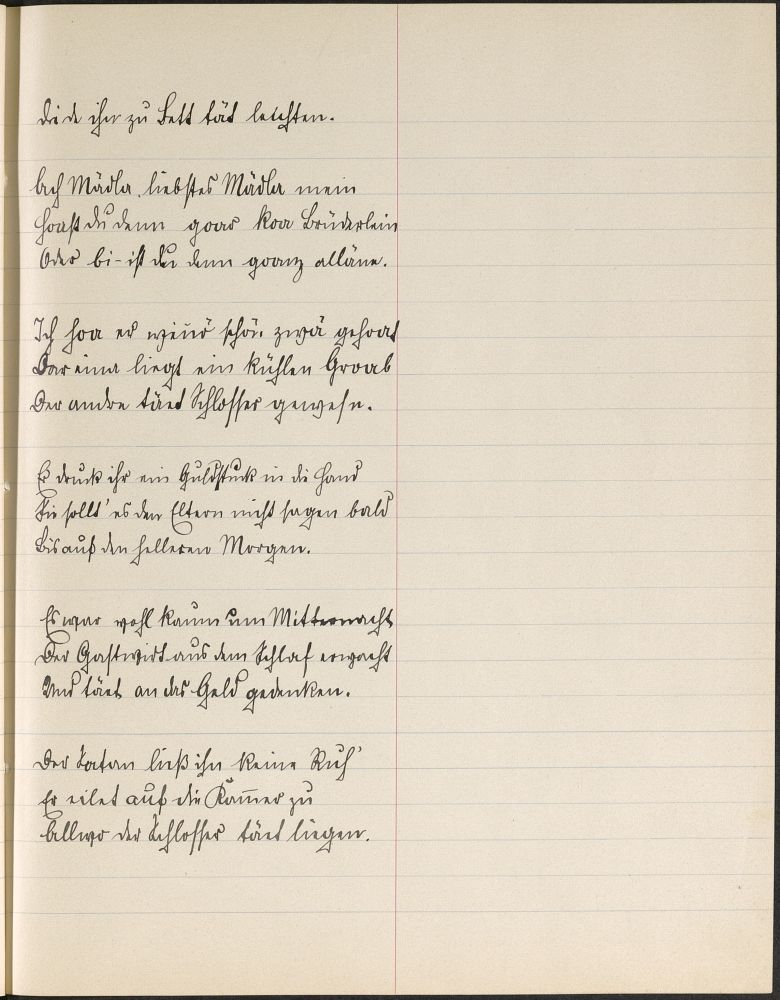 Die ihn zu Bett tät leichten.
Ach Mädla, liebstes Mädla mein
Hoast du denn goar koa Brüderlein
Oder bi-ist du denn goanz alläne.
Ich hoa er schön zwä gehoat
Dar eina liegt ein kühlen Groab
Der andre täet Schlosser gewesn.
Er druck ihr ein Guldstuck in die Hand
Sie sollt' es den Eltern nicht sagen bald
Bis auf den helleren Morgen.
Es war wohl kaum um Mitternacht
Der Gastwirt aus dem Schlaf erwacht
Und täet an das Geld gedenken.
Der Satan ließ ihn keine Ruh'
Er eilet auf die Kam̅er zu
Allwo der Schlosser täet liegen.